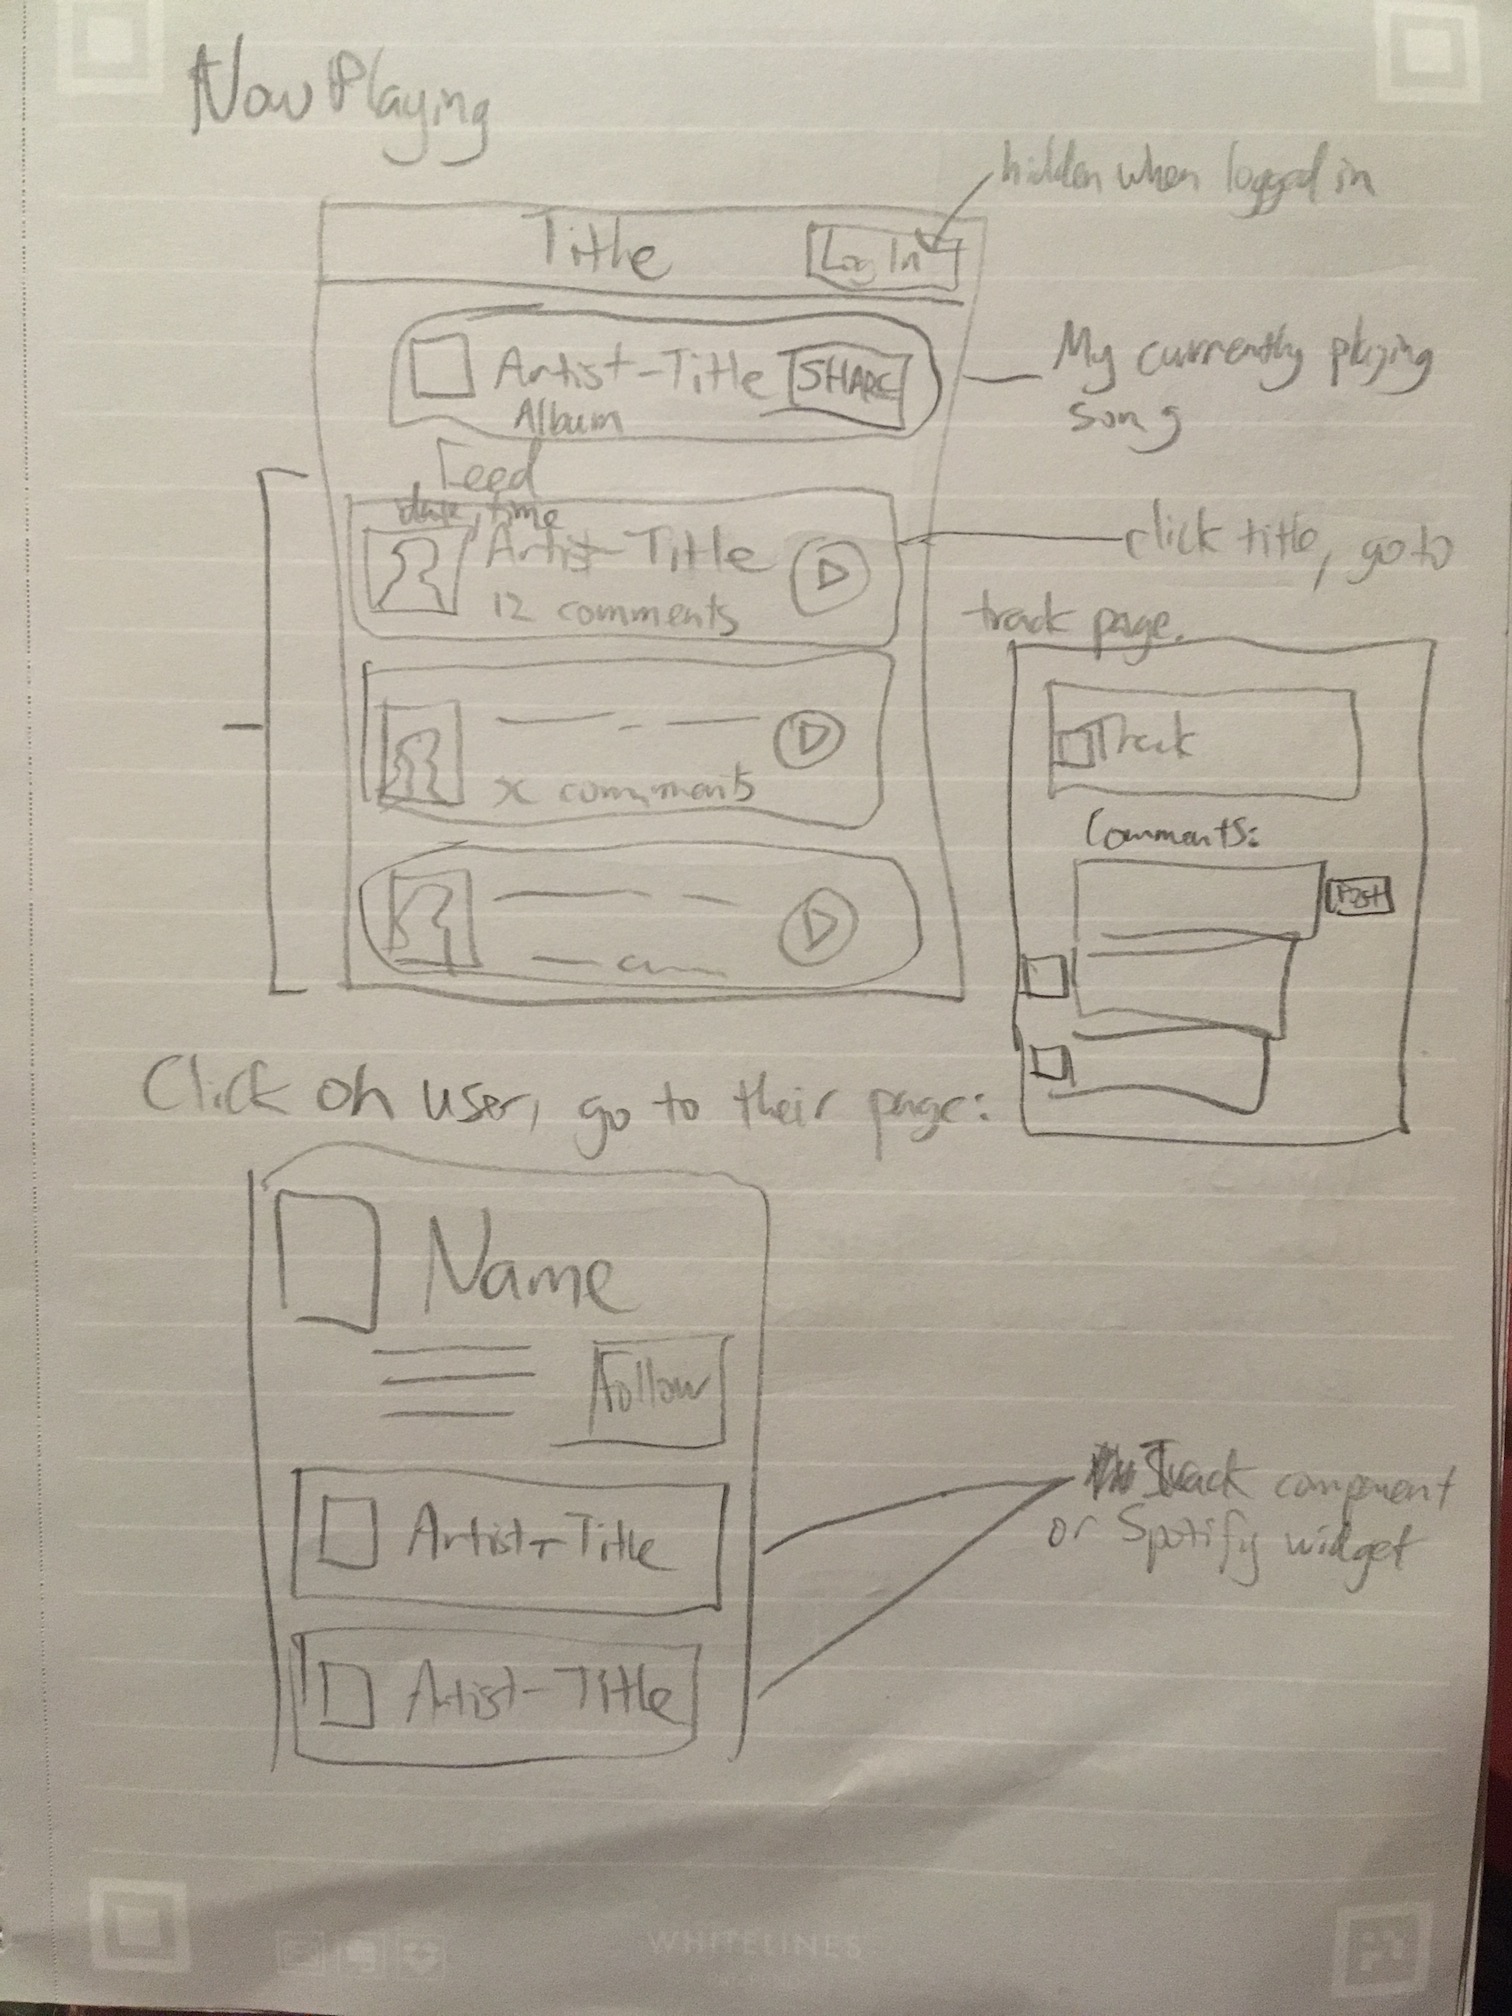 Now Playing
hidden when logged in
Title
Log In
Artist-Title
SHARE
Album
My currently playing
song
Feed
date, time
Artist-Title
12 comments
click title, go to
track page.
x comments
Track
Comments:
Post
Click on user, go to their page:
Name
Follow
Artist-Title
Track component
or Spotify widget
Artist-Title
WHITELINES